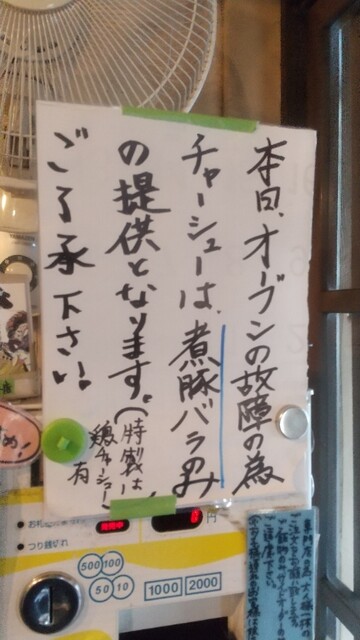 本日、オーブンの故障の為
チャーシューは、煮豚バラのみ
の提供となります。(特製は
鶏チャーシュー有)
ご了承下さい!
●お札
●つり銭切れ
発売中
0円
500 100
50 10
1000 2000